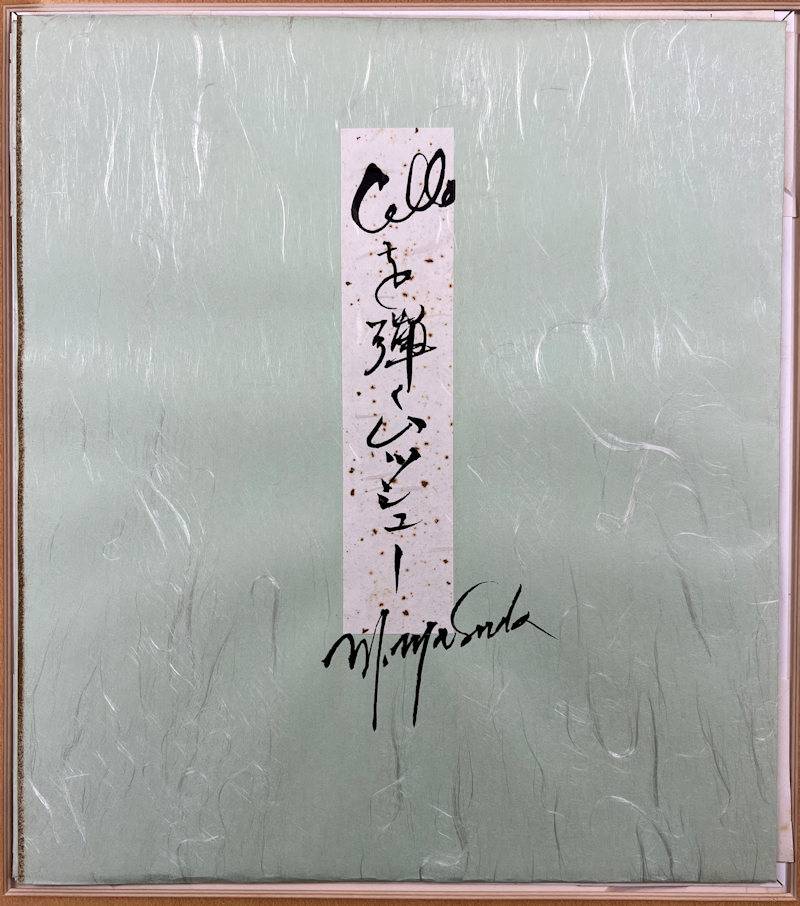 Celloを弾くムッシュー
M. Masuda